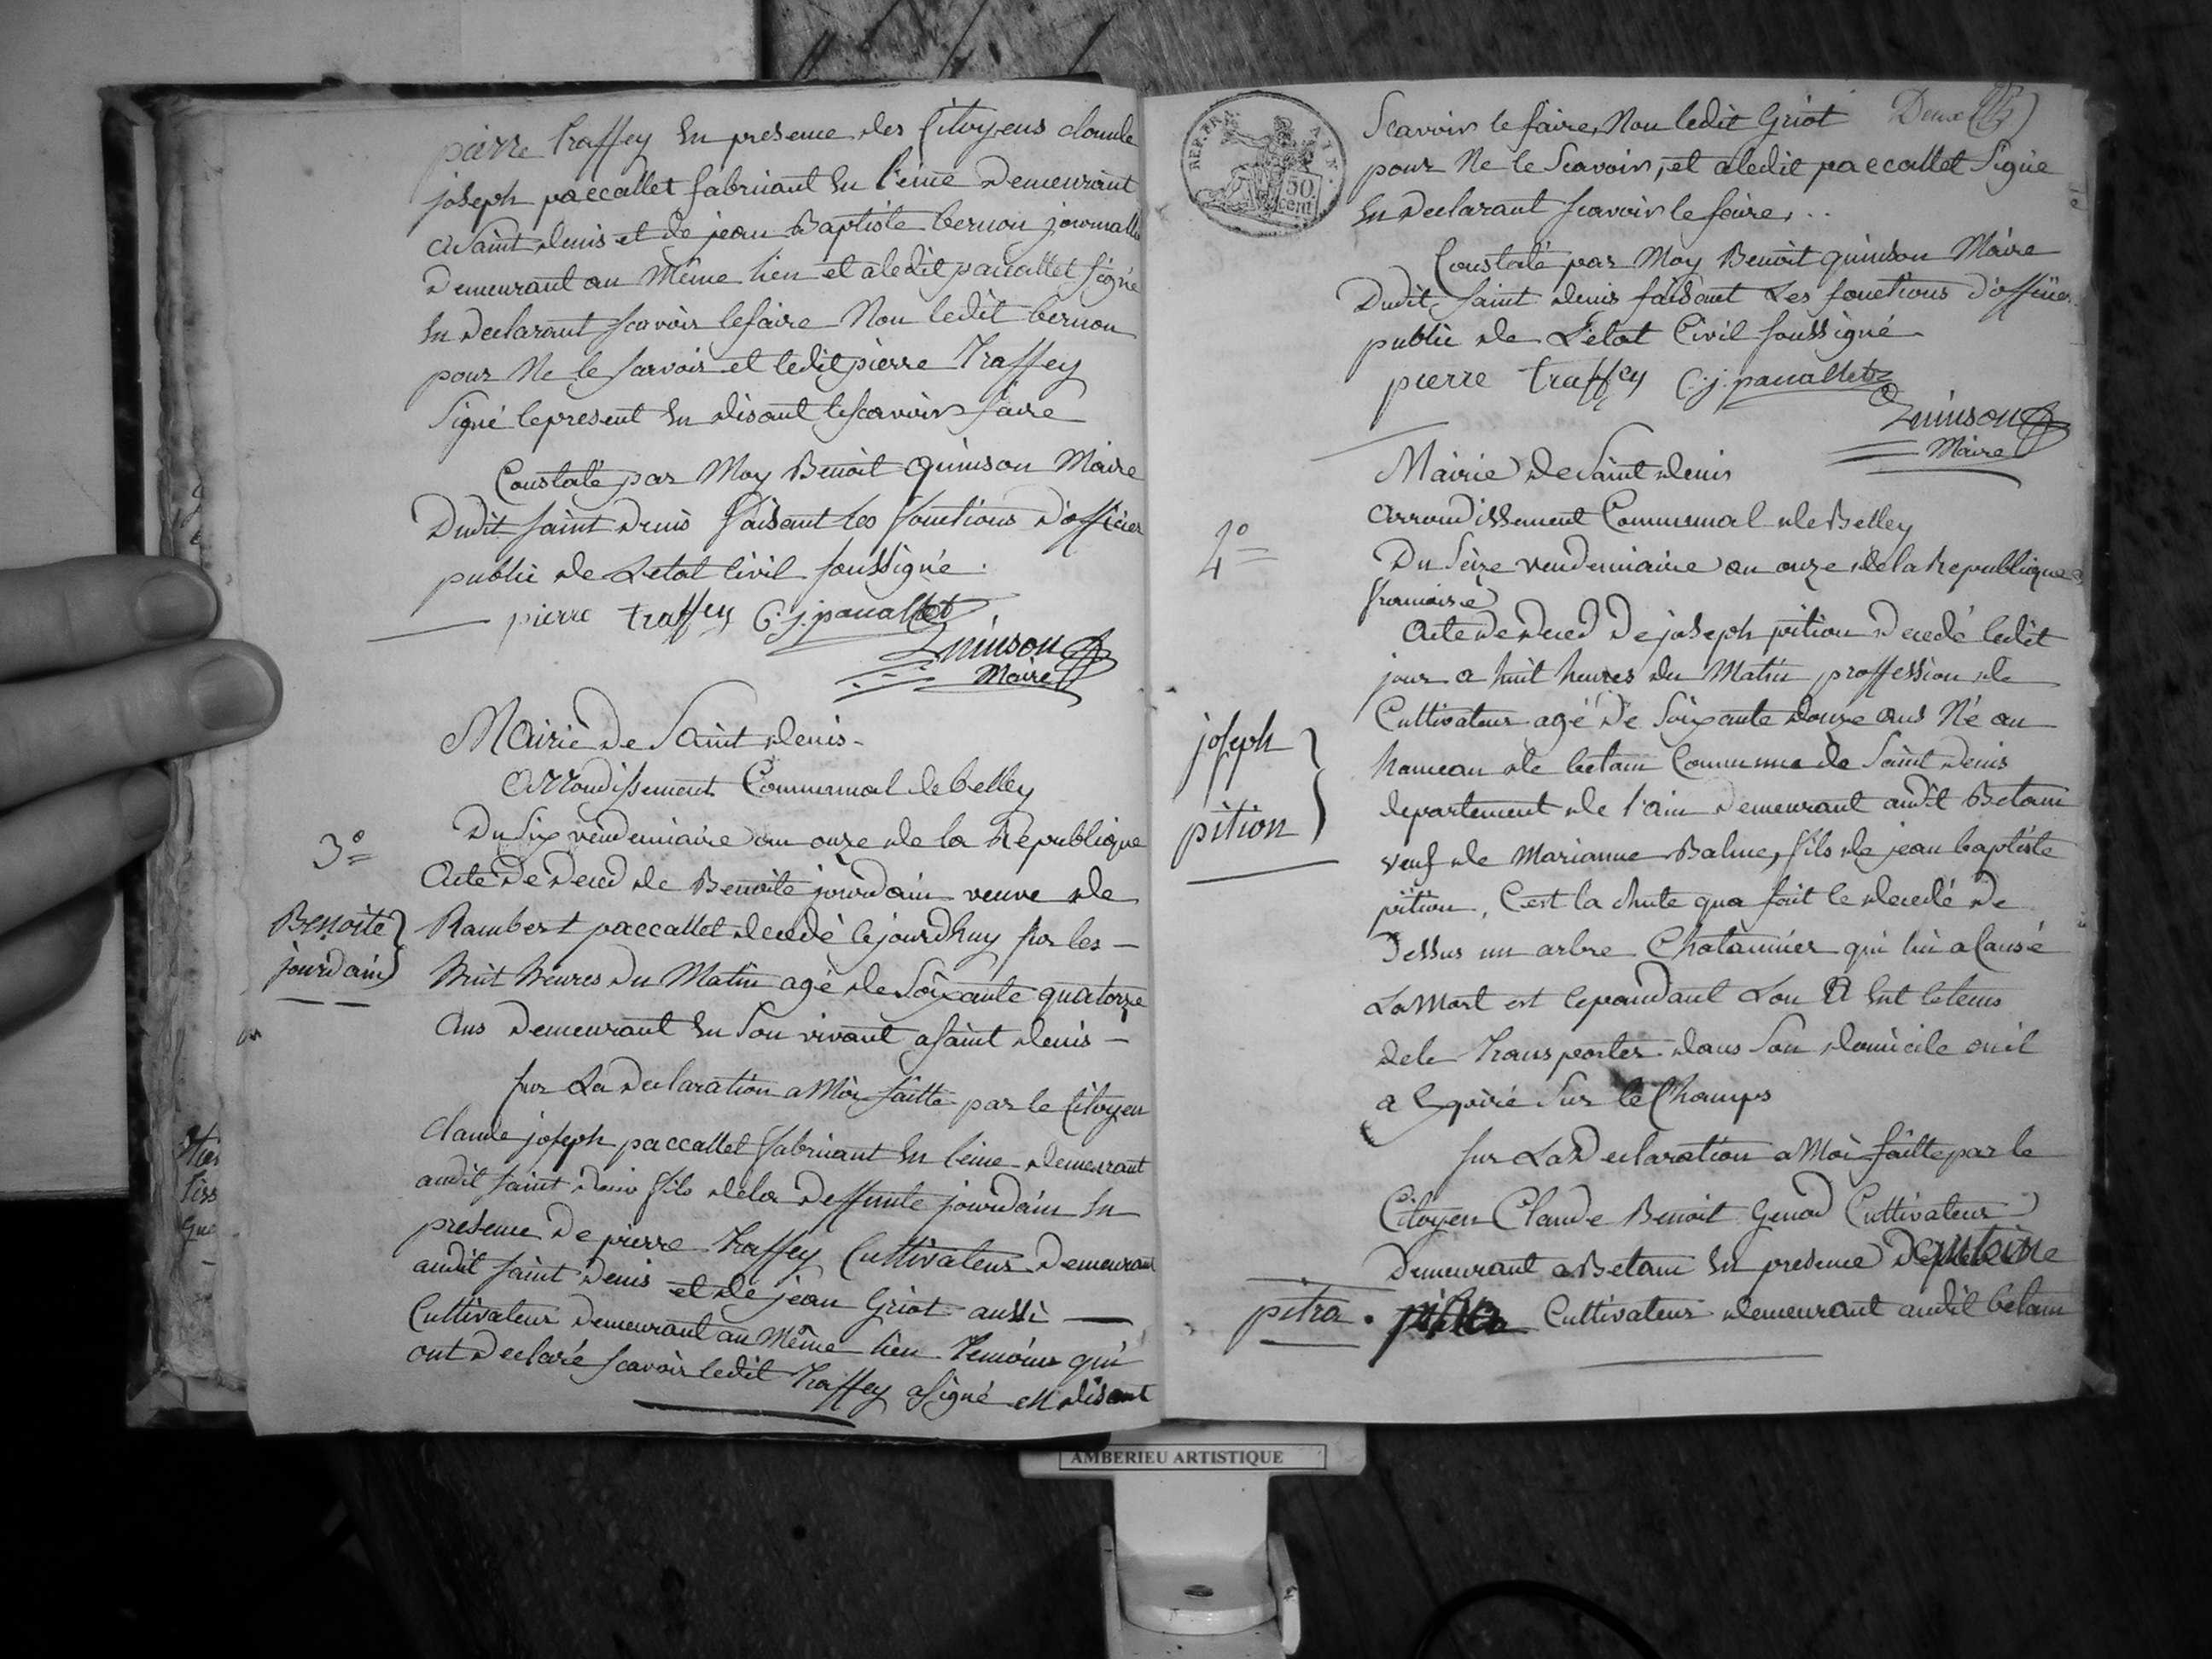 pierre traffey En presence des Citoyens claude
joseph paccallet fabricant En leine Demeurant
a Saint denis et de jean Baptiste bernon journallie
Demeurant au Même lieu et a ledit paccallet signé
En Declarant scavoir le faire Non ledit bernon
pour Ne le scavoir et ledit pierre Traffey
Signé le present En disant le scavoir faire
Constaté par Moy Benoit quinson Maire
Dudit saint Denis faisant les fonctions D'officier
public de L'etat Civil soussigné.
pierre traffey C. j. paccallet
Quinson
Maire
Mairie De Saint denis
Arrondissement Communal de belley
3°
Du Six vendemiaire an onze de la Republique
Acte De Deced de Benoite jourdain veuve de
Benoite
jourdain
Rambert paccallet decedé cejourdhuy sur les
huit heures Du Matin agé de Soixante quatorze
Ans Demeurant En Son vivant a saint denis
sur La declaration a Moi faitte par le Citoyen
claude joseph paccallet fabricant En leine demeurant
audit saint denis fils de la Deffunte jourdain En
presence De pierre traffey Cultivateur Demeurant
audit saint Denis et de jean Griot aussi
Cultivateur Demeurant au Même lieu temoins qui
ont Declaré scavoir ledit traffey a signé en disant
REP. FRA
50
cent
Scavoir le faire, Non ledit Griot
Deux
pour Ne le Scavoir, et a ledit paccallet Signé
En Declarant scavoir le faire, ..
Constaté par Moy Benoit quinson Maire
Dudit saint denis faisant Les fonctions d'officier
public de L'etat Civil soussigné
pierre traffey C. j. paccallet
Quinson
Maire
Mairie de Saint denis
Arrondissement Communal de Belley
4°
Du Seize vendemiaire an onze de la Republique
francaise
Acte de deced De joseph pition Decedé ledit
jour a huit heures du Matin, proffession de
Cultivateur agé De Soixante douze ans Né au
joseph
pition
hameau de betam Commune de Saint denis
departement de l'ain demeurant audit Betam
veuf de Marianne Balme, fils de jean baptiste
pition, C'est la chute qua fait le decedé de
Dessus un arbre Chatannier qui lui a Causé
La Mort est cepandant Lon A Eut le tems
dele transporter dans Son domicile ou il
a Expiré Sur le Champs
sur La Declaration a Moi faitte par le
Citoyen Claude Benoit Genod Cultivateur
Demeurant a Betam En presence D'antoine
pitra. Cultivateur demeurant audit betam
AMBERIEU ARTISTIQUE